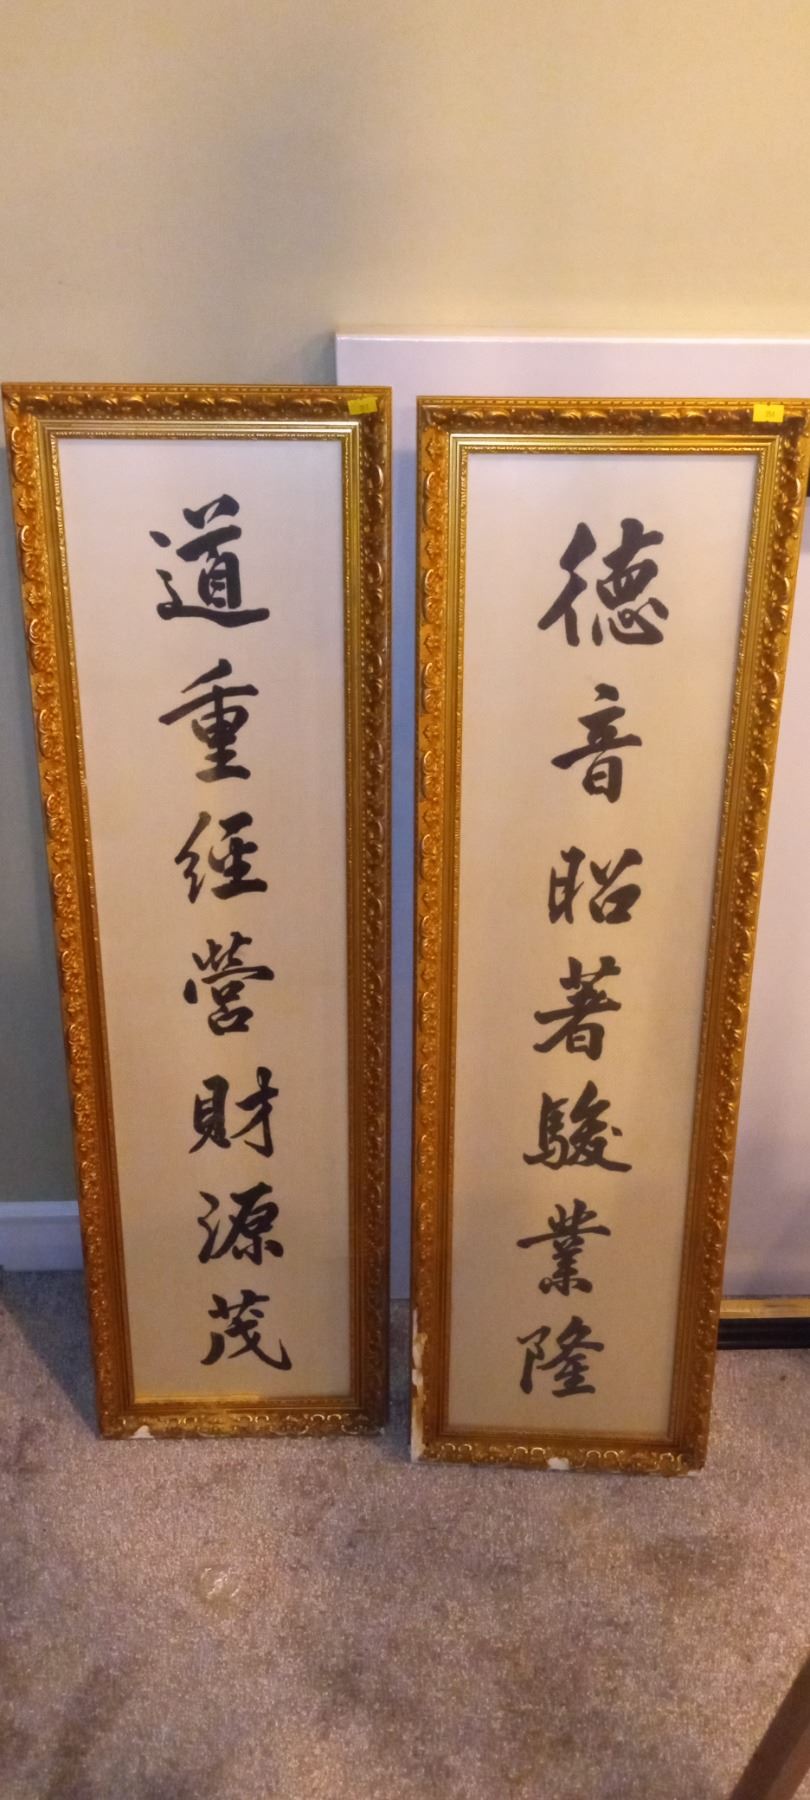 道重經營財源茂
德音昭著駿業隆